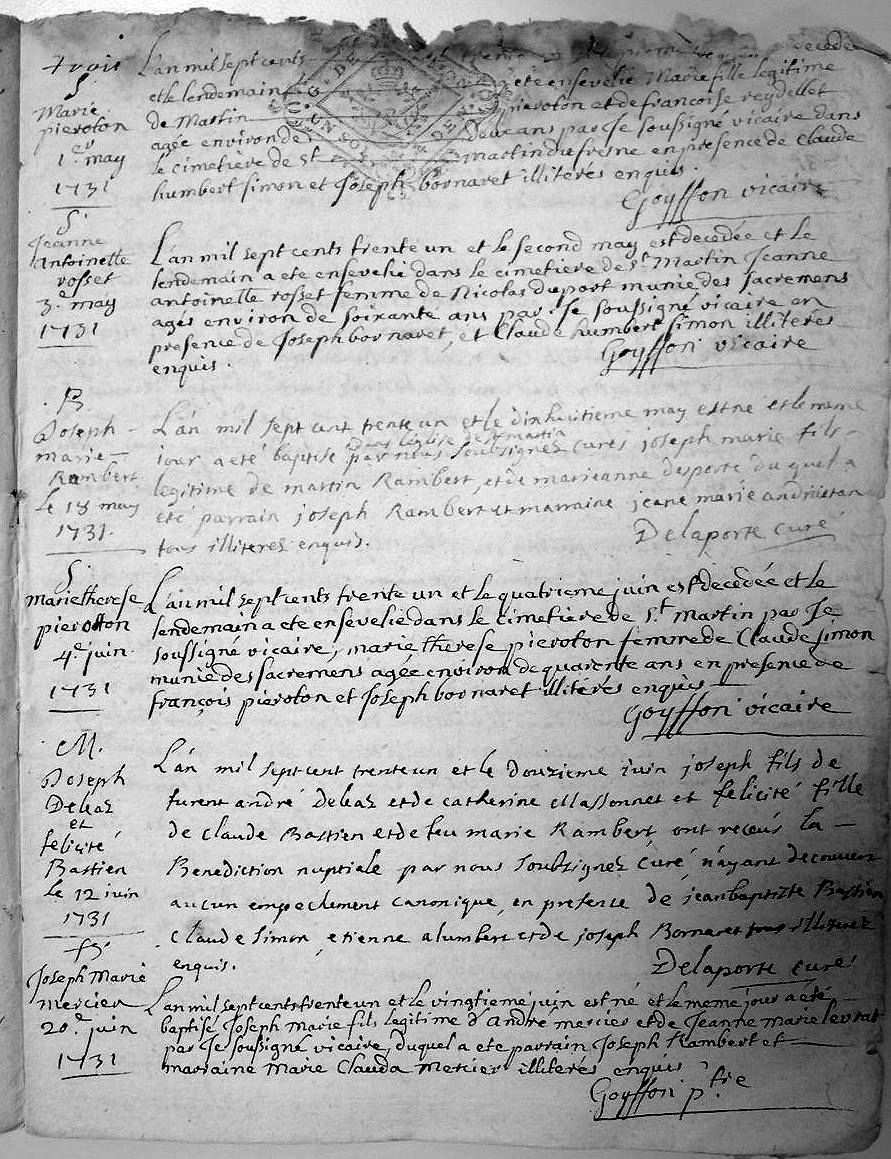 trois
S.
Marie
pieroton
1.er may
1731
L'an mil sept cents decedee
et le lendemain a ete ensevelie Marie fille legitime
de Martin pieroton et de francoise reydellet
agée environ de deux ans par Je soussigné vicaire dans
le cimetiere de St martin du fresne en presence de Claude
humbert simon et Joseph bornaret illiteres enquis.
Goyffon vicaire
S.
Jeanne
Antoinette
rosset
3.e may
1731
L'an mil sept cents trente un et le second may est decedée et le
lendemain a ete ensevelie dans le cimetiere de St Martin Jeanne
antoinette rosset femme de Nicolas duport munie des sacremens
agés environ de soixante ans par Je soussigné vicaire en
presence de Joseph bornaret, et Claude humbert simon illiterés
enquis.
Goyffon vicaire
B
Joseph
marie
Rambert
le 18 may
1731.
L'an mil sept cent trente un et le dixhuitieme may est né et le meme
dans l'eglise de St martin
iour a eté baptise par nous soubsignez curés joseph marie fils
legitime de martin Rambert, et de marieanne desporte duquel a
eté parrain joseph Rambert et marraine jeane marie
tous illiteres enquis.
Delaporte curé
S.
Marie therese
pierotton
4.e juin
1731
L'an mil sept cents trente un et le quatrieme juin est decedée et le
lendemain a ete ensevelie dans le cimetiere de St Martin par Je
soussigné vicaire, marie therese pieroton femme de Claude simon
munie des sacremens agée environ de quarente ans en presence de
françois pieroton et Joseph bornaret illiterés enquis
Goyffon vicaire
M.
Joseph
Deleaz
et
felicité
Bastien
le 12 iuin
1731
L'an mil sept cent trente un et le douzieme iuin joseph fils de
furent andré deleaz et de catherine Massonnet et felicité fille
de claude Bastien et de feu marie Rambert ont receus la
Benediction nuptiale par nous soubsignez curé n'ayant decouvert
aucun empechement canonique, en presence de jean baptiste Bastien
claude simon, etienne alumbert et de joseph Bornaret tous illiterez
enquis.
Delaporte curé
B.
Joseph Marie
mercier
20.e juin
1731
L'an mil sept cents trente un et le vingtieme juin est né et le meme jour a eté
baptisé Joseph Marie fils legitime d'André mercier et de Jeanne marie levrat
par Je soussigné vicaire, duquel a ete parrain Joseph Rambert et
marraine Marie Clauda Mercier illiterés enquis
Goyffon ptre